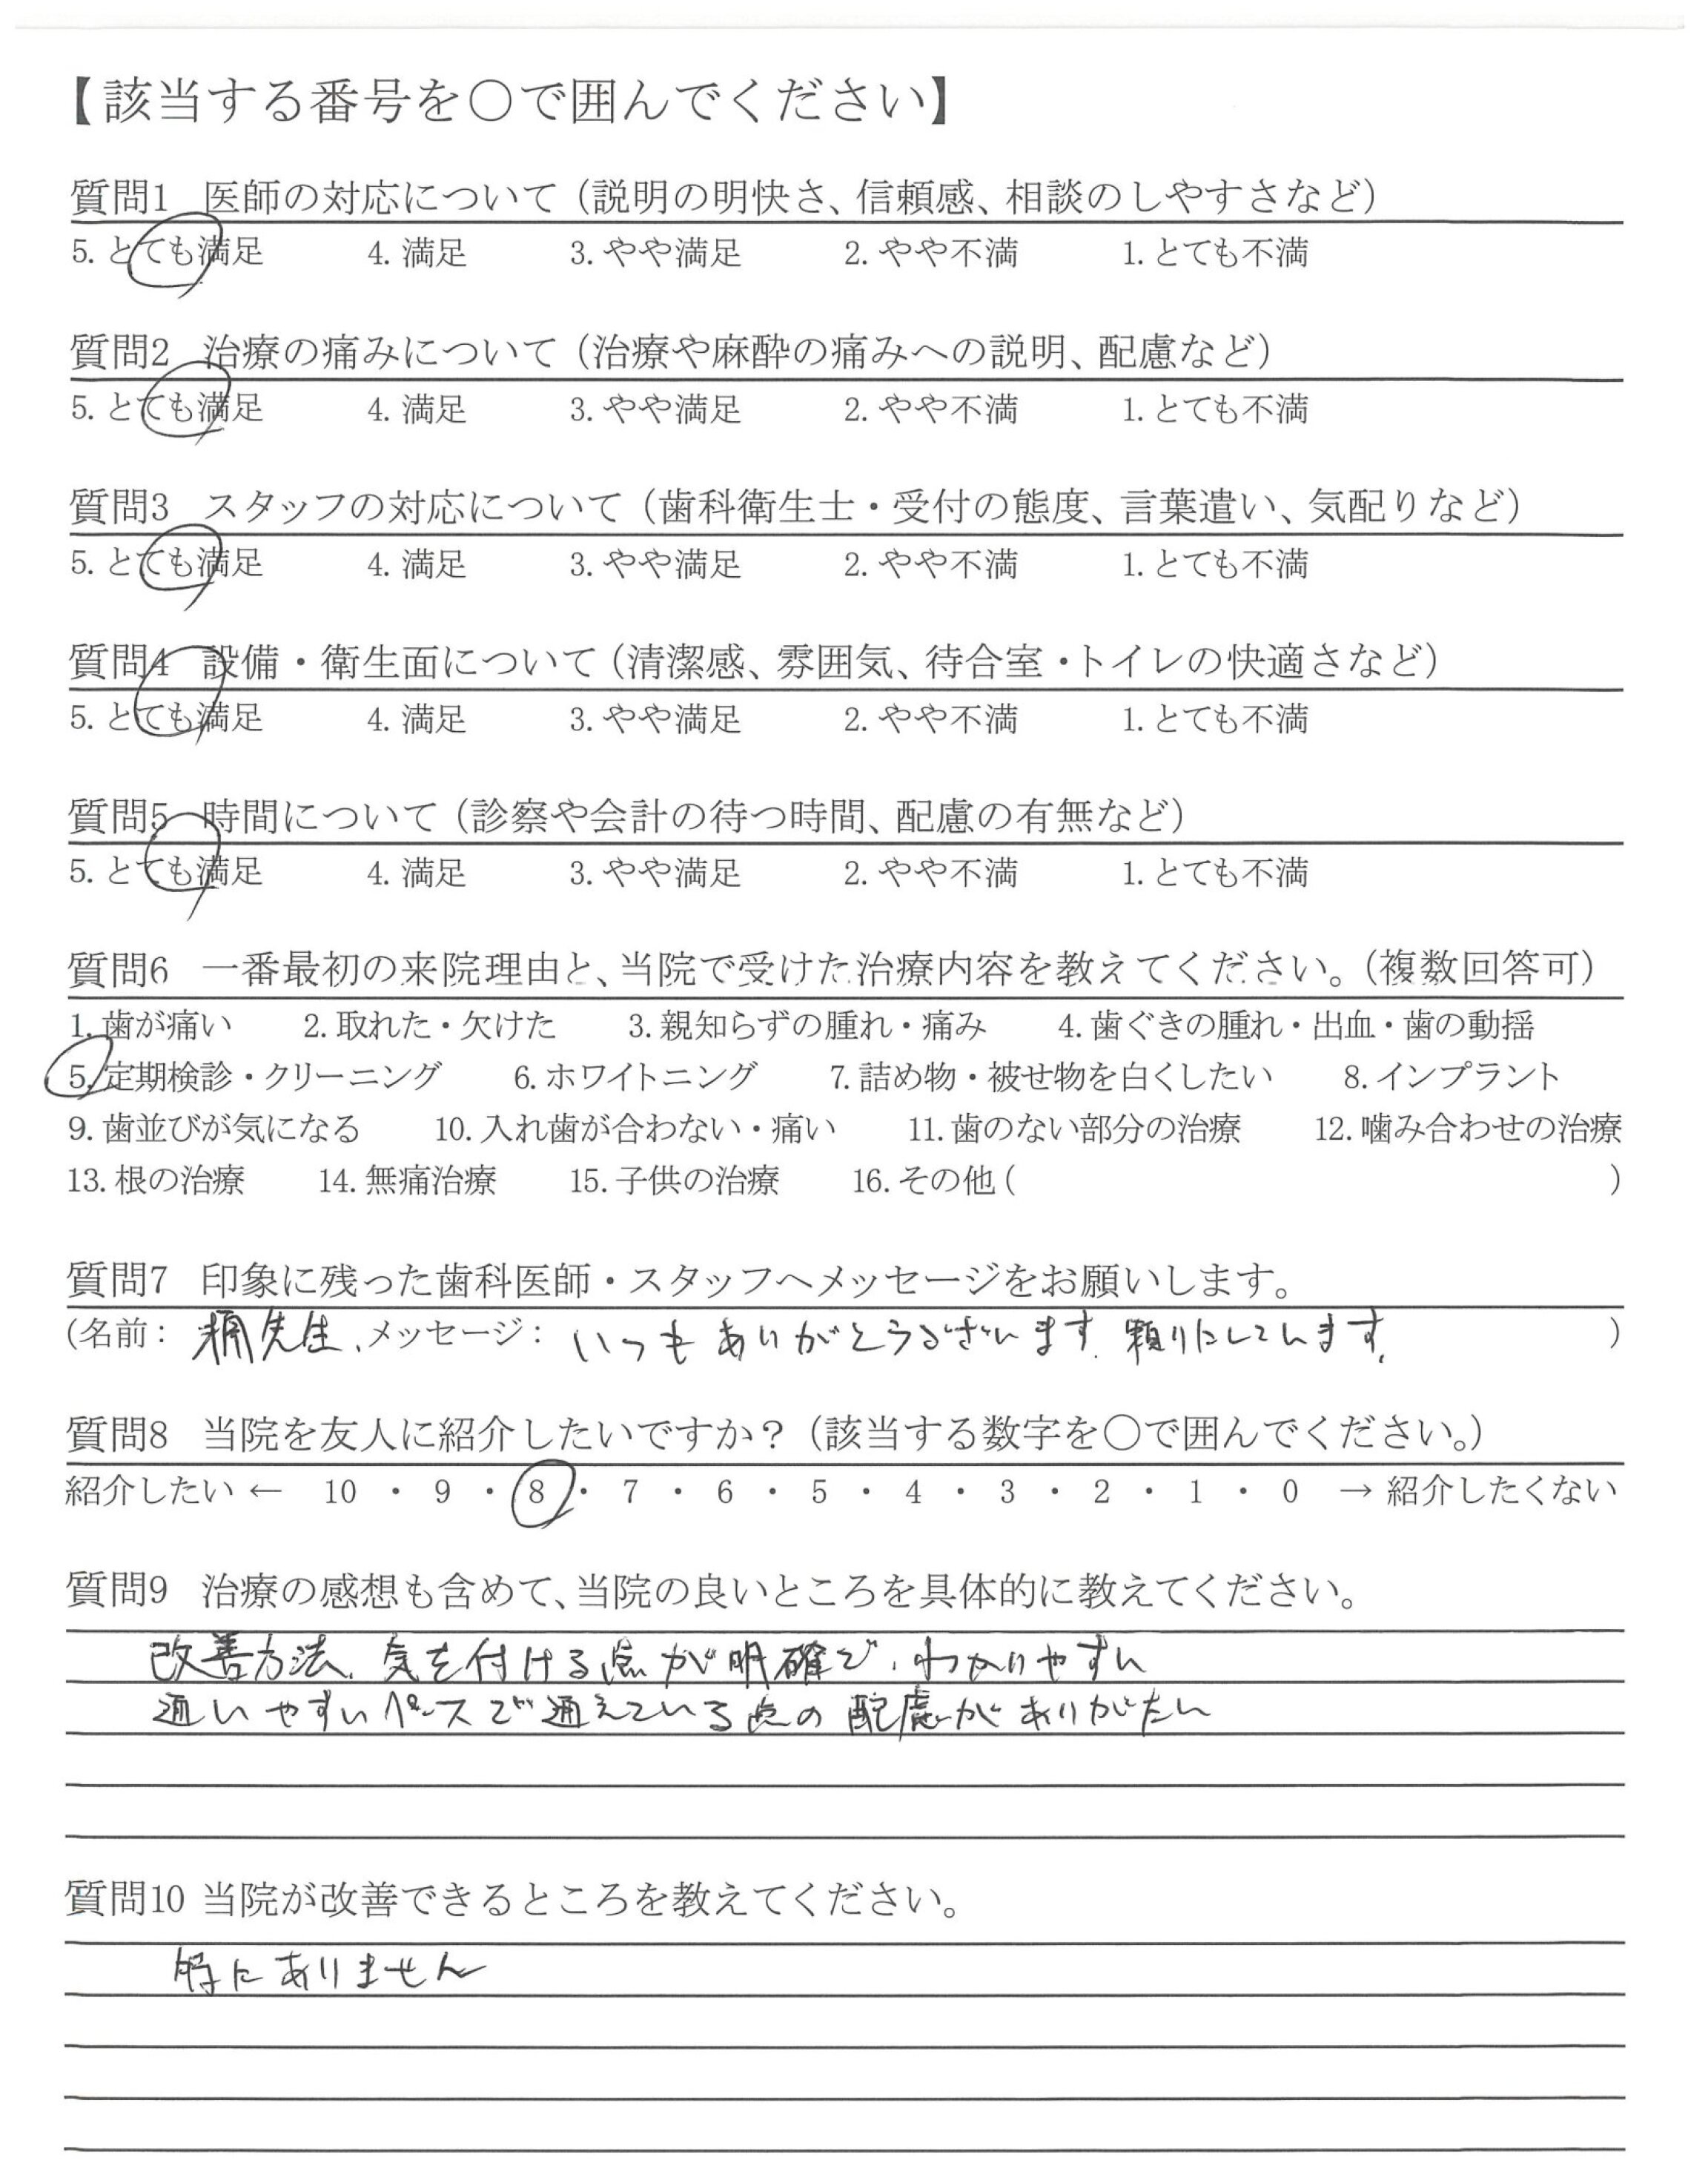 【該当する番号を○で囲んでください】
質問1 医師の対応について（説明の明快さ、信頼感、相談のしやすさなど）
5. とても満足 4. 満足 3. やや満足 2. やや不満 1. とても不満
質問2 治療の痛みについて（治療や麻酔の痛みへの説明、配慮など）
5. とても満足 4. 満足 3. やや満足 2. やや不満 1. とても不満
質問3 スタッフの対応について（歯科衛生士・受付の態度、言葉遣い、気配りなど）
5. とても満足 4. 満足 3. やや満足 2. やや不満 1. とても不満
質問4 設備・衛生面について（清潔感、雰囲気、待合室・トイレの快適さなど）
5. とても満足 4. 満足 3. やや満足 2. やや不満 1. とても不満
質問5 時間について（診察や会計の待つ時間、配慮の有無など）
5. とても満足 4. 満足 3. やや満足 2. やや不満 1. とても不満
質問6 一番最初の来院理由と、当院で受けた治療内容を教えてください。（複数回答可）
1. 歯が痛い 2. 取れた・欠けた 3. 親知らずの腫れ・痛み 4. 歯ぐきの腫れ・出血・歯の動揺
5. 定期検診・クリーニング 6. ホワイトニング 7. 詰め物・被せ物を白くしたい 8. インプラント
9. 歯並びが気になる 10. 入れ歯が合わない・痛い 11. 歯のない部分の治療 12. 噛み合わせの治療
13. 根の治療 14. 無痛治療 15. 子供の治療 16. その他（ ）
質問7 印象に残った歯科医師・スタッフへメッセージをお願いします。
（名前： 先生、メッセージ： いつもありがとうございます。頼りにしています。 ）
質問8 当院を友人に紹介したいですか？（該当する数字を○で囲んでください。）
紹介したい ← 10 ・ 9 ・ 8 ・ 7 ・ 6 ・ 5 ・ 4 ・ 3 ・ 2 ・ 1 ・ 0 → 紹介したくない
質問9 治療の感想も含めて、当院の良いところを具体的に教えてください。
改善方法、気を付ける点が明確で、わかりやすい
通いやすいペースで通えている点の配慮がありがたい
質問10 当院が改善できるところを教えてください。
特にありません